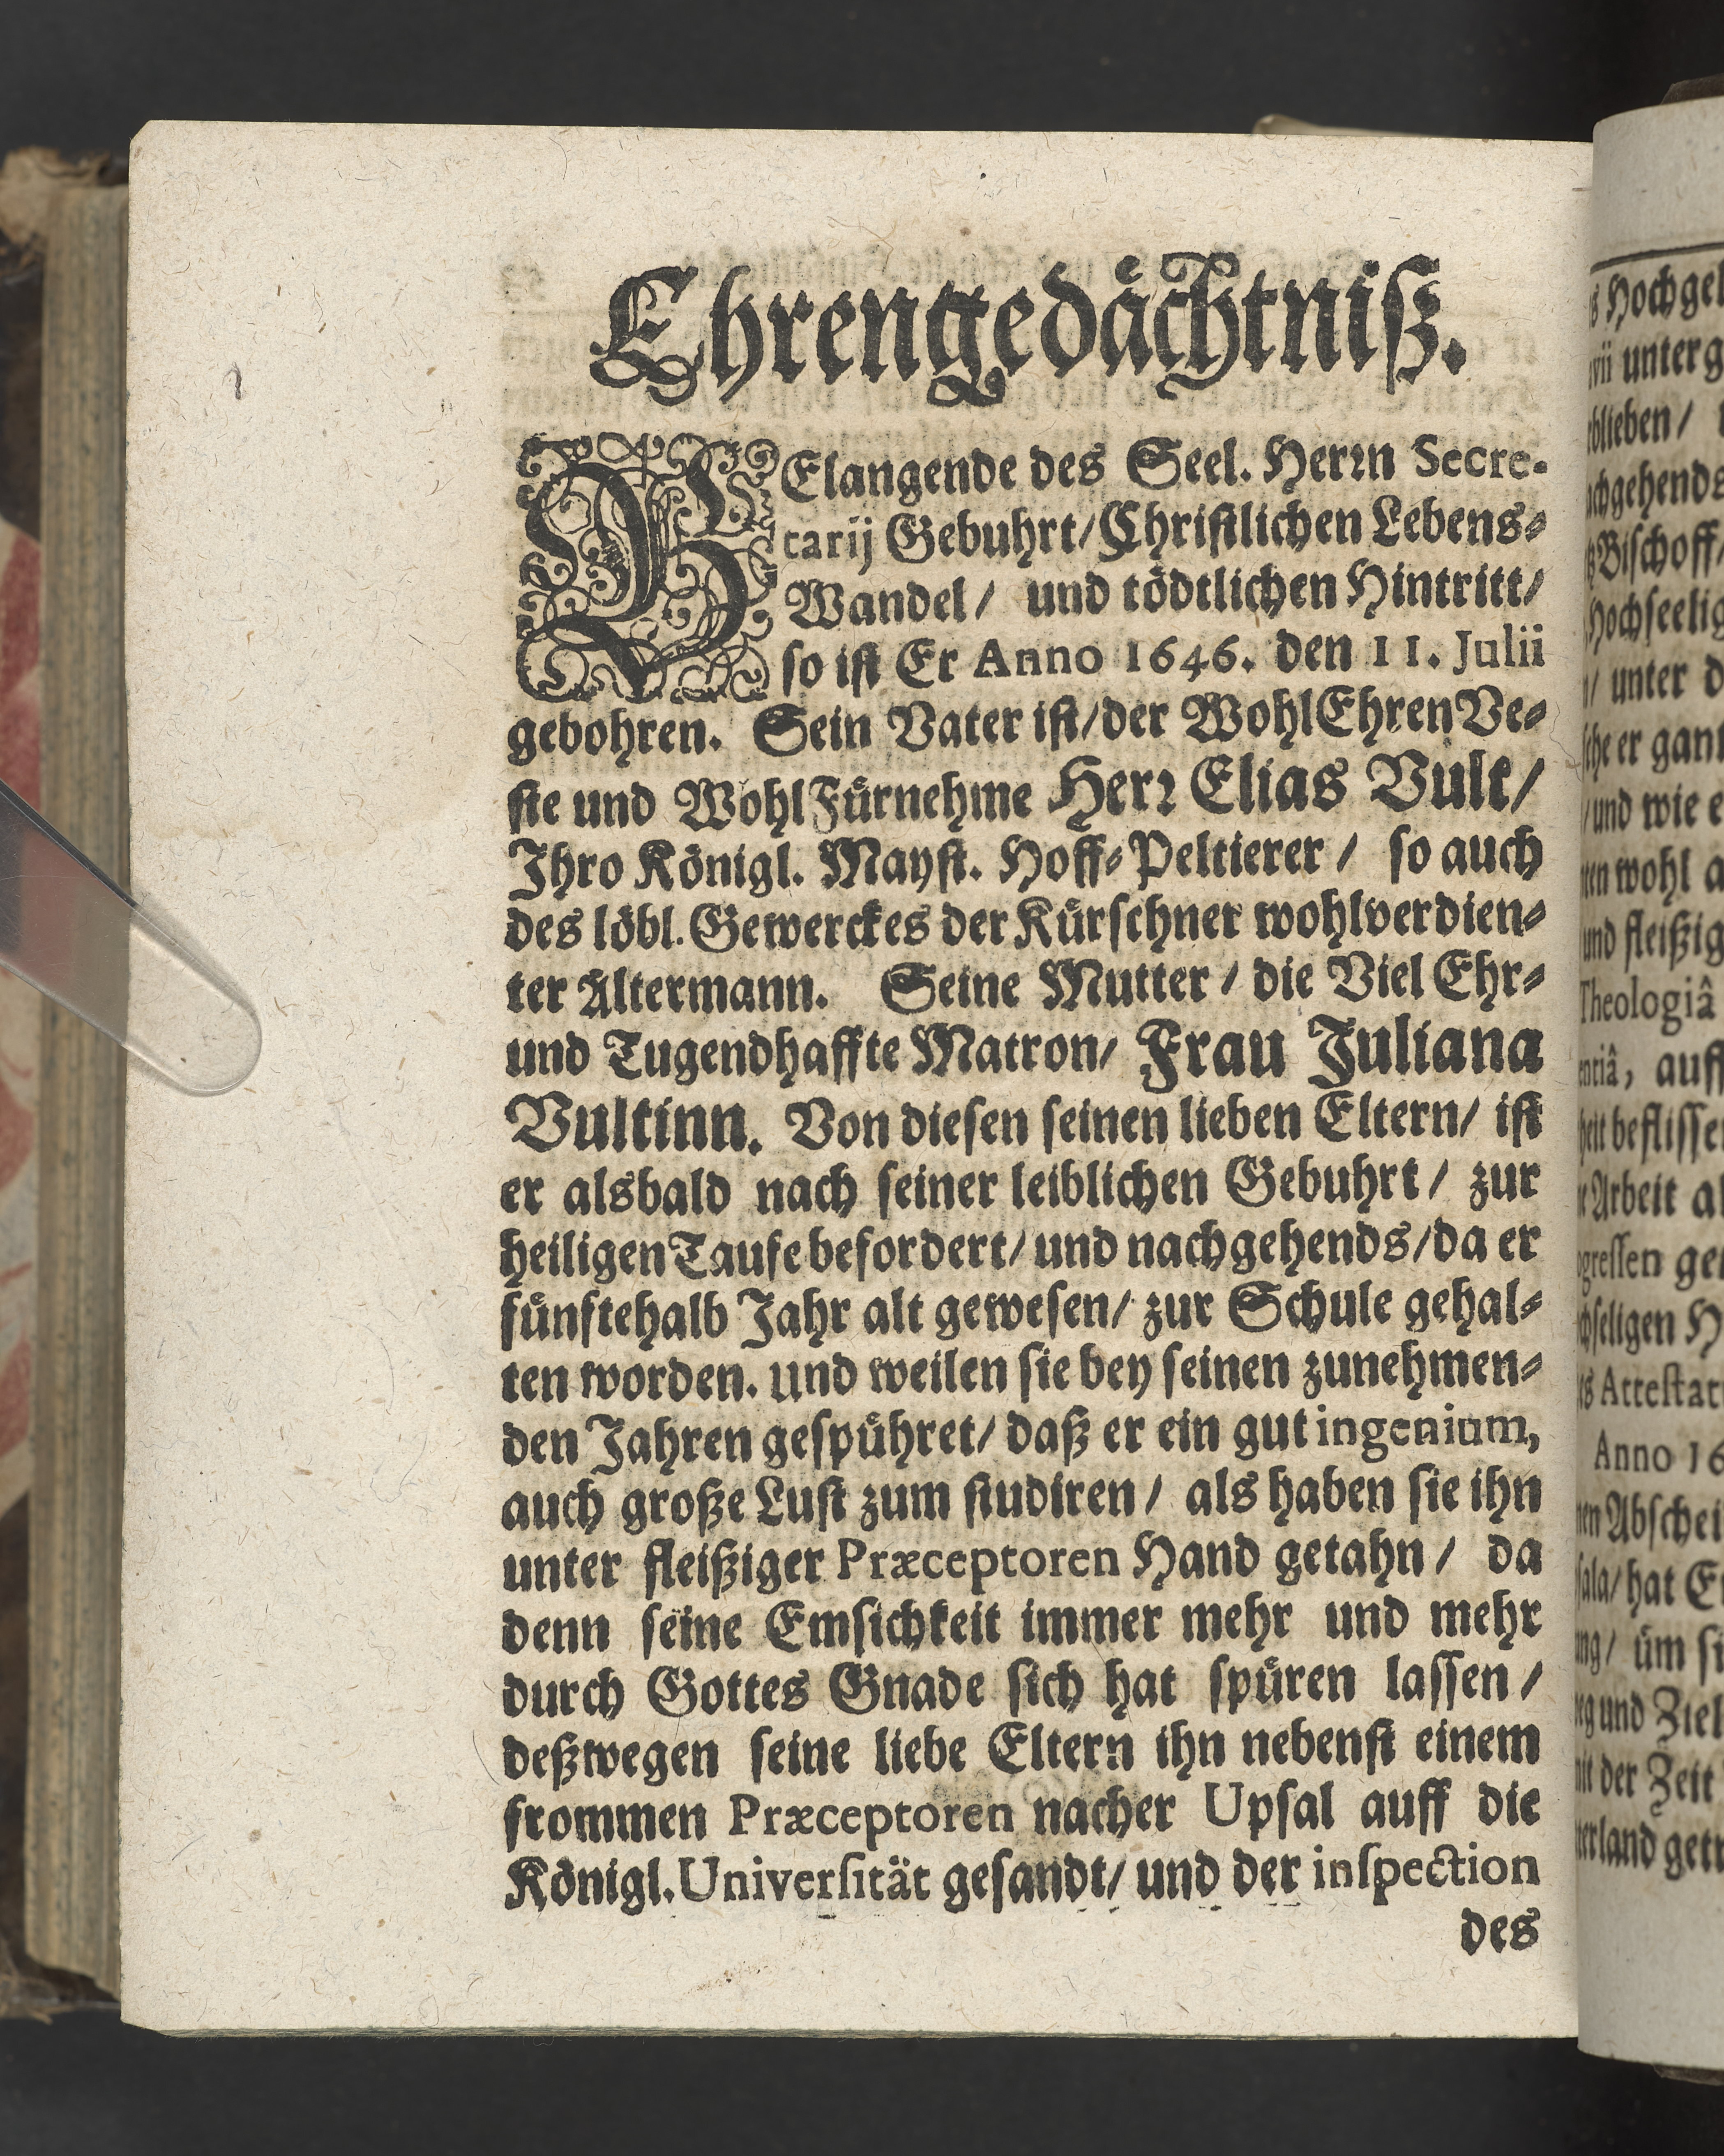 Ehrengedächtniß.
BElangende des Seel. Herrn Secre-
tarij Gebuhrt/Christlichen Lebens-
Wandel/ und tödtlichen Hintritt/
so ist Er Anno 1646. den 11. Julii
gebohren. Sein Vater ist/der WohlEhrenVe-
ste und WohlFürnehme Herr Elias Vult/
Ihro Königl. Mayst. Hoff-Peltierer / so auch
des löbl. Gewerckes der Kürschner wohlverdien-
ter Altermann. Seine Mutter / die Viel Ehr-
und Tugendhaffte Matron/ Frau Juliana
Vultinn. Von diesen seinen lieben Eltern/ ist
er alsbald nach seiner leiblichen Gebuhrt / zur
heiligen Taufe befordert/ und nachgehends/da er
fünftehalb Jahr alt gewesen/ zur Schule gehal-
ten worden. und weilen sie bey seinen zunehmen-
den Jahren gespühret/ daß er ein gut ingenium,
auch große Lust zum studiren / als haben sie ihn
unter fleißiger Præceptoren Hand getahn / da
denn seine Emsichkeit immer mehr und mehr
durch Gottes Gnade sich hat spüren lassen /
deßwegen seine liebe Eltern ihn nebenst einem
frommen Præceptoren nacher Upsal auff die
Königl. Universität gesandt/ und der inspection
des
Hochgel
unterg
blieben/
achgehends
Bischoff/
Hochseelig
unter d
er gant
/und wie e
wohl a
und fleißig
Theologiâ
auff
beflisse
Arbeit al
gressen ge
seligen H
Attestat
Anno 16
Abschei
sala/ hat E
üm si
und Ziel
der Zeit
erland getr